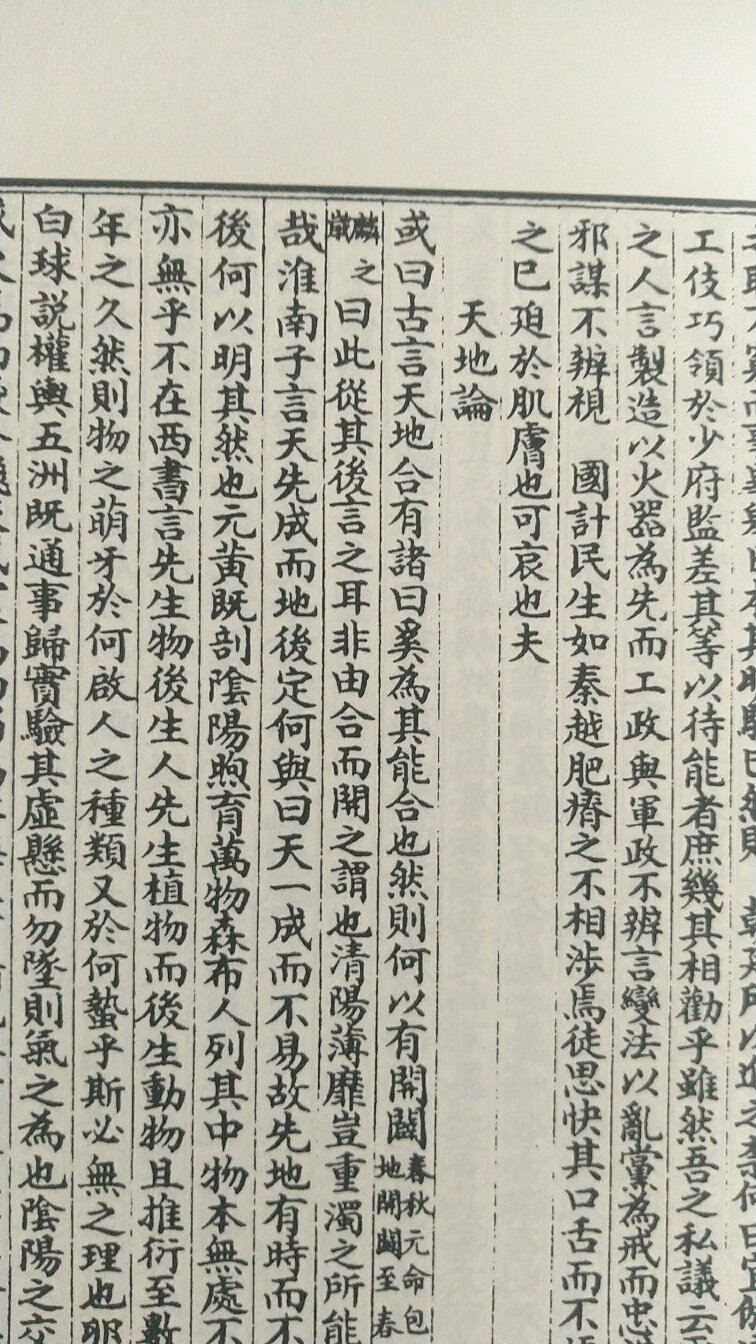 工伎巧領於少府監差其等以待能者庶幾其相勸乎雖然吾之私議云
之人言製造以火器為先而工政與軍政不辨言變法以亂黨為戒而忠
邪謀不辨視　國計民生如秦越肥瘠之不相涉焉徒思快其口舌而不
之已廹於肌膚也可哀也夫
天地論
或曰古言天地合有諸曰奚為其能合也然則何以有開闢春秋元命包
地開闢至春
麟之
曰此從其後言之耳非由合而開之謂也清陽薄靡豈重濁之所能
哉淮南子言天先成而地後定何與曰天一成而不易故先地有時而不
後何以明其然也元黃既剖陰陽煦育萬物森布人列其中物本無處不
亦無乎不在西書言先生物後生人先生植物而後生動物且推衍至數
年之久然則物之萌牙於何啟人之種類又於何蟄乎斯必無之理也
白球説權輿五洲既通事歸實驗其虛懸而勿墜則氣之為也陰陽之交